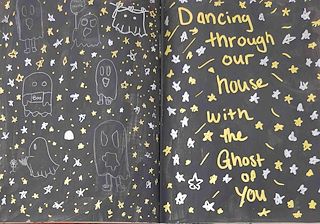 Boo
Dancing
through
our
house
with
the
Ghost
of
You